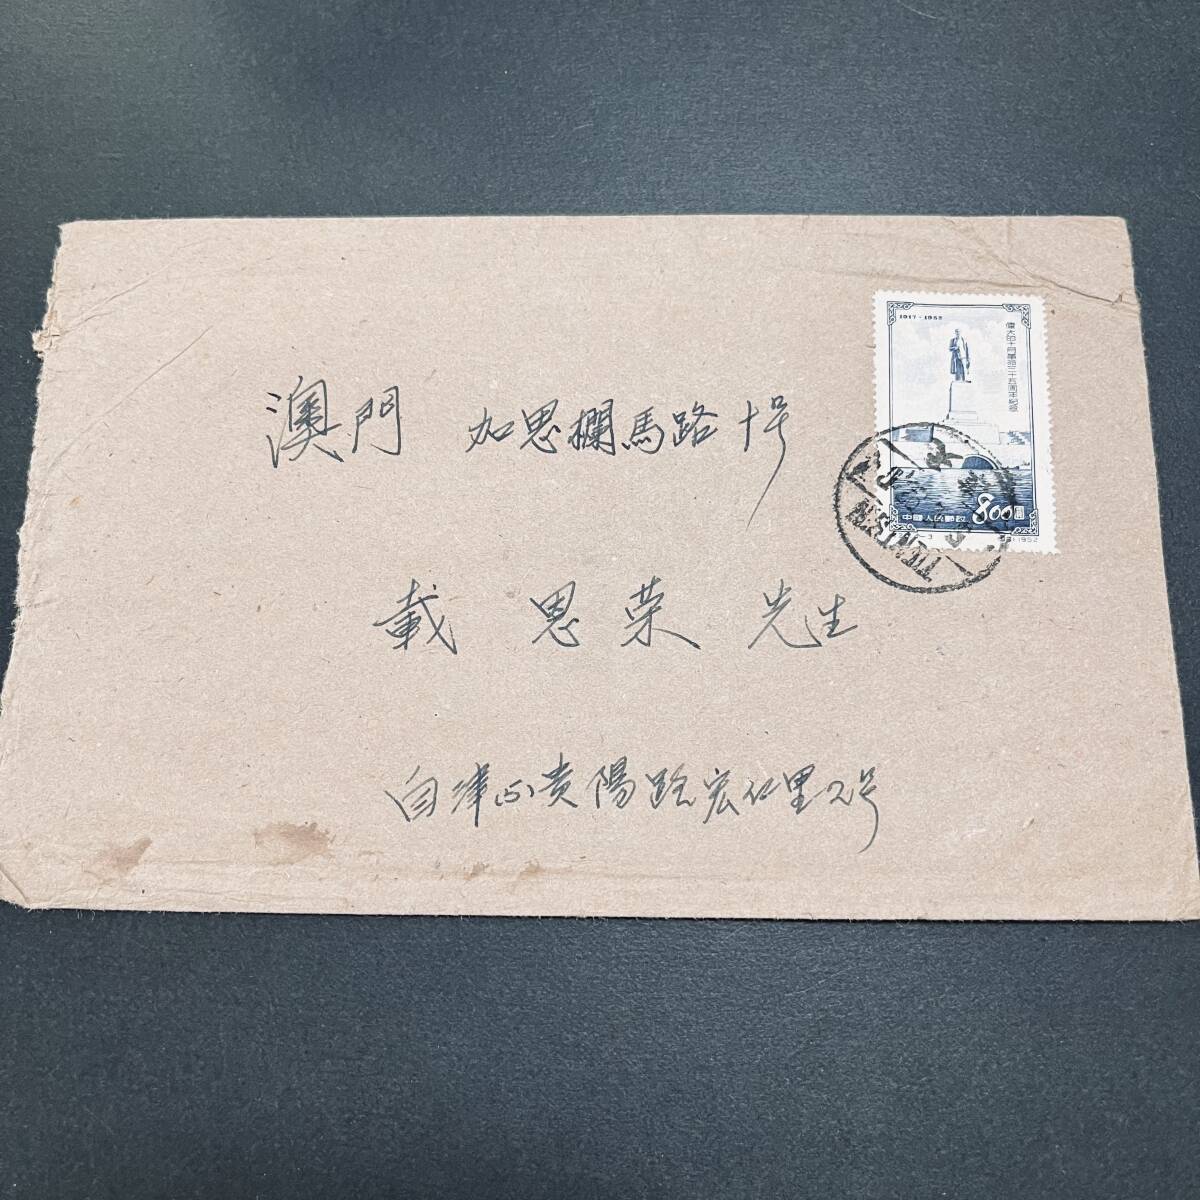 1917-1952
偉大的十月革命三十五週年紀念
澳門 加思欄馬路十号
800圓
中國人民郵政
1952
TIENTSIN
載 恩荣 先生
自津山贵陽路宏仁里2号